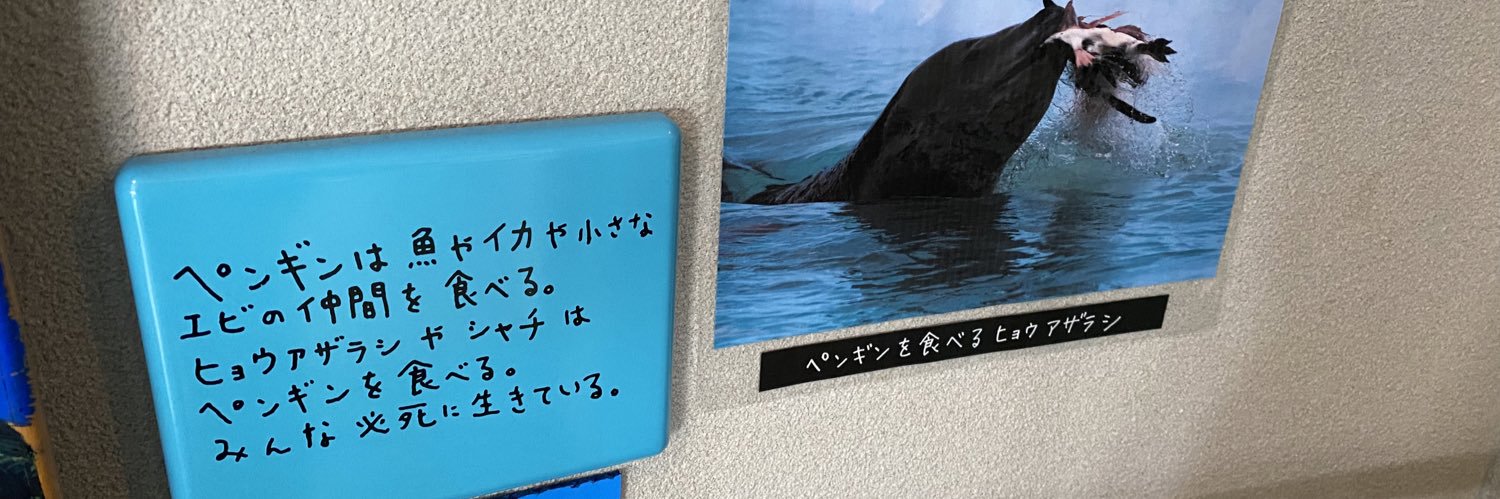 ペンギンは 魚やイカや小さな
エビの仲間を 食べる。
ヒョウアザラシ や シャチ は
ペンギンを 食べる。
みんな 必死に生きている。
ペンギンを食べる ヒョウアザラシ